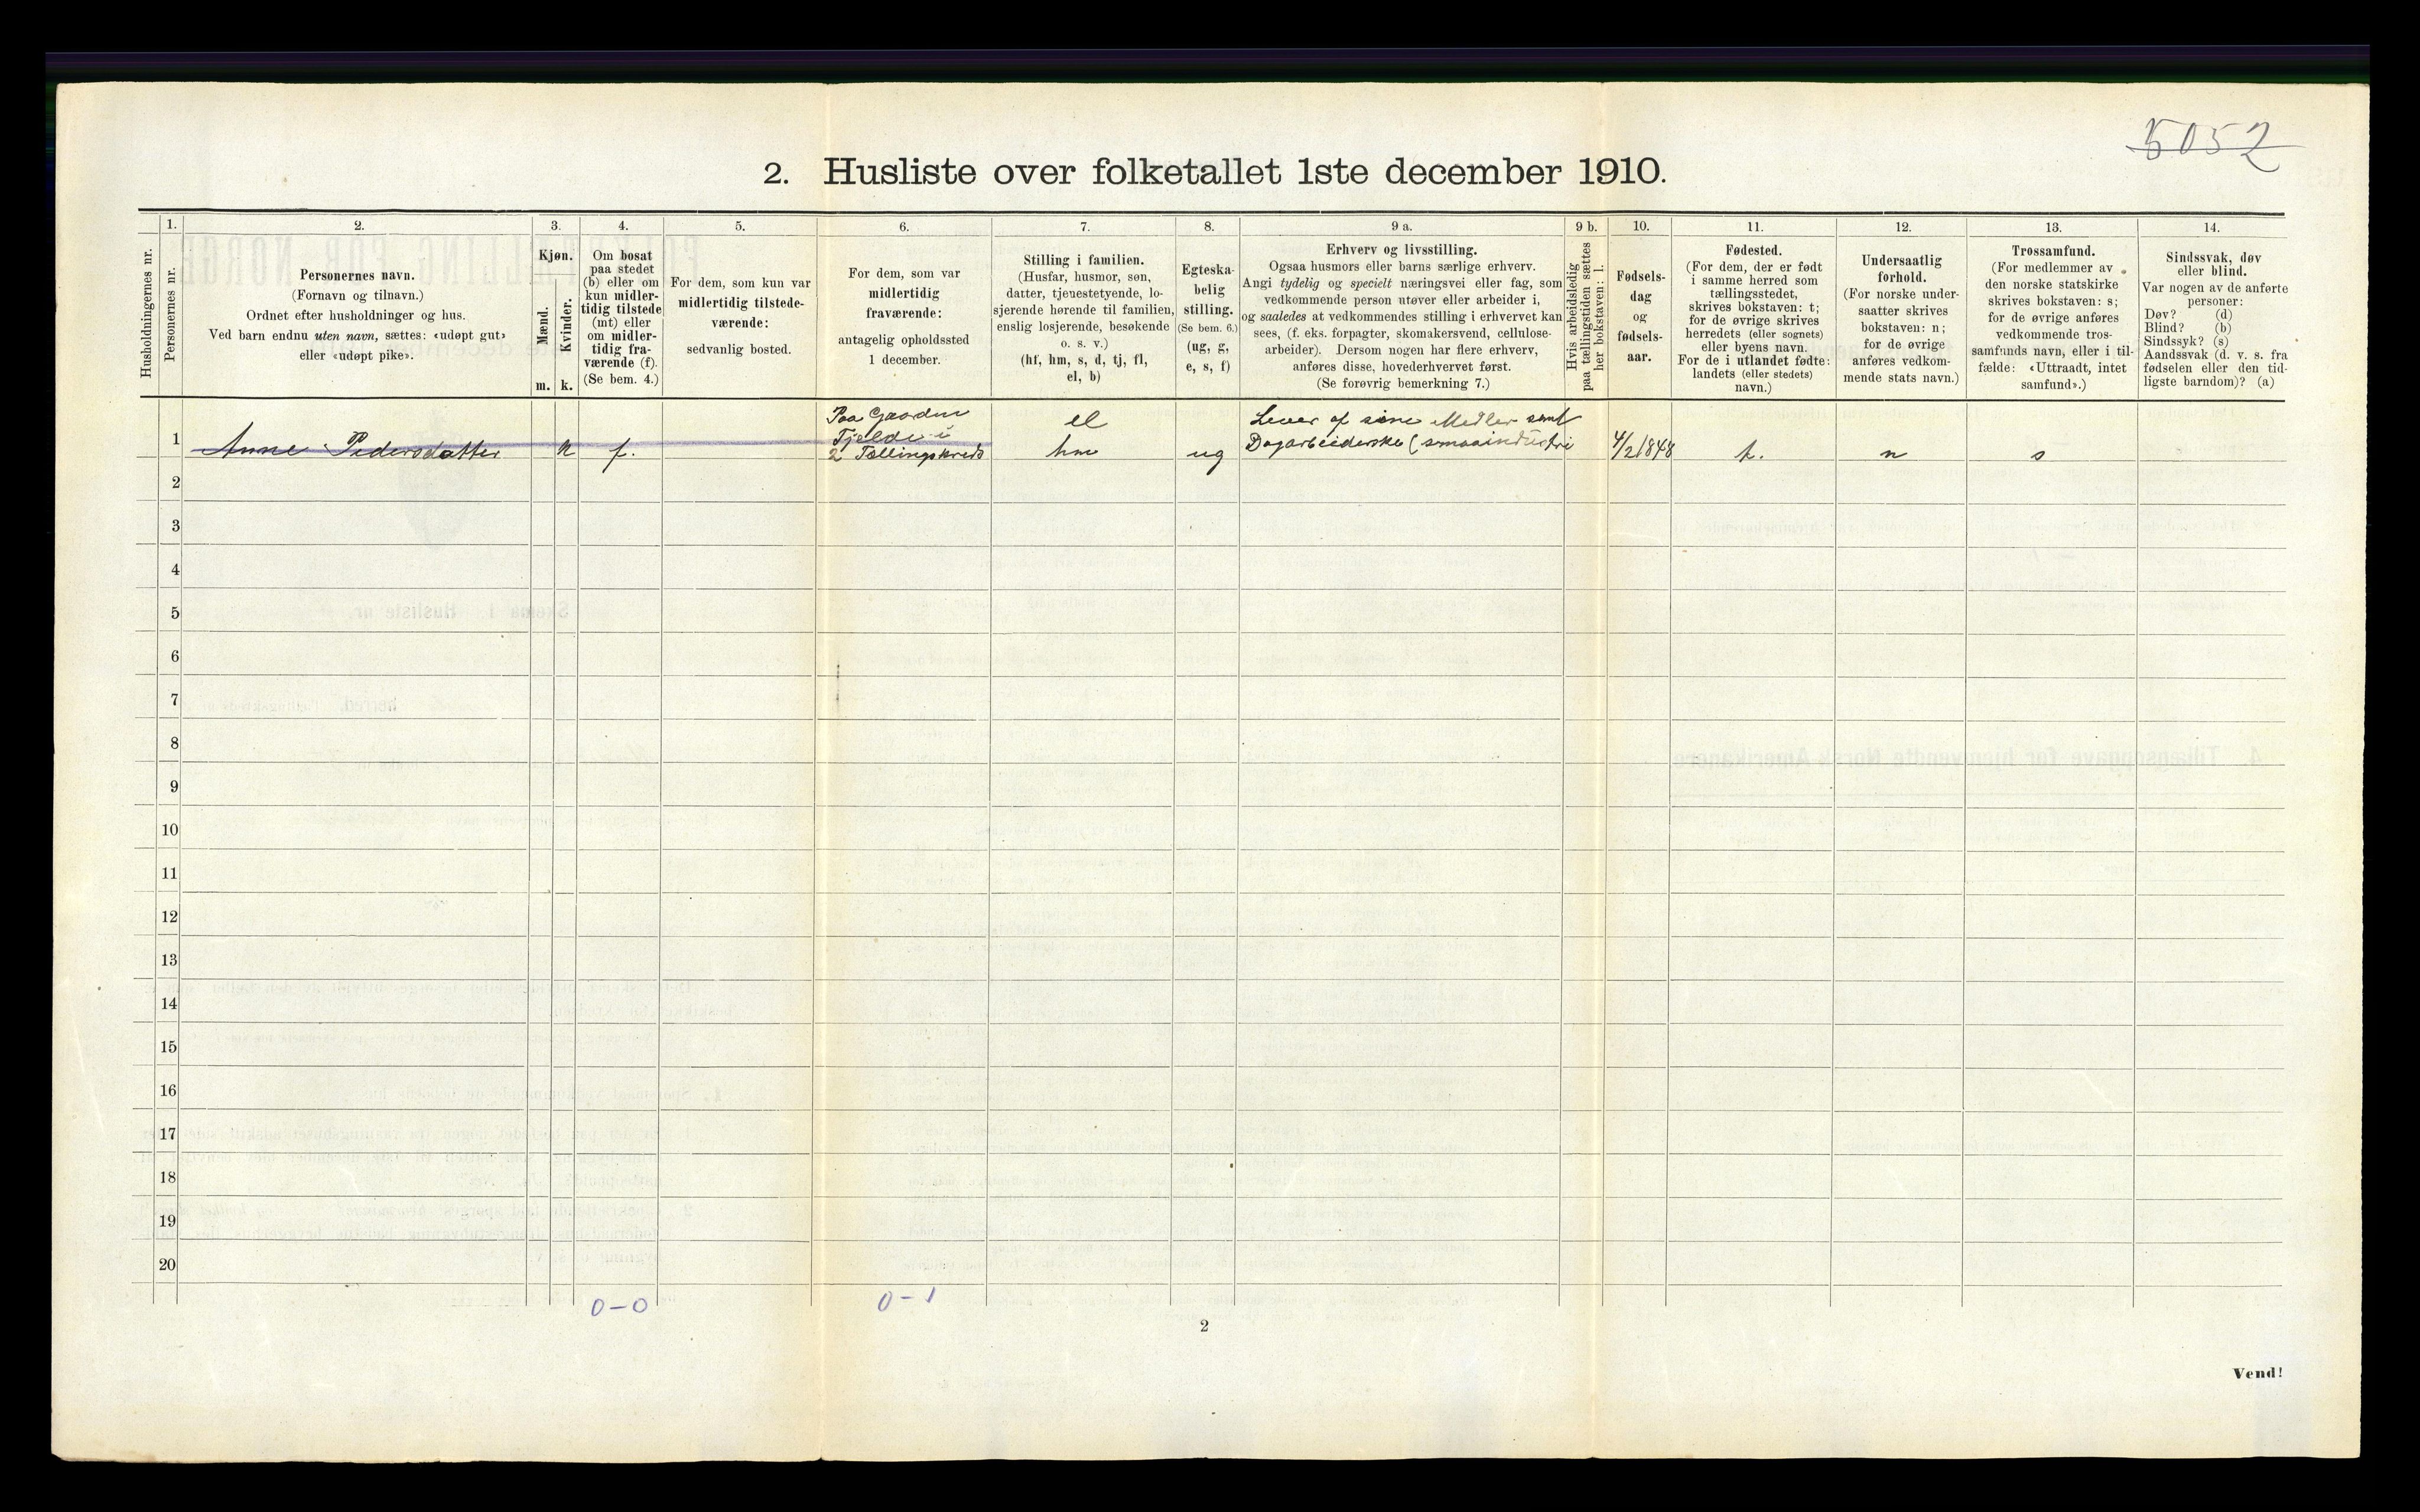 5052
2. Husliste over folketallet 1ste december 1910.
Husholdningernes nr.
1.
Personernes nr.
2.
Personernes navn.
(Fornavn og tilnavn.)
Ordnet efter husholdninger og hus.
Ved barn endnu uten navn, sættes: «udøpt gut»
eller «udøpt pike».
3.
Kjøn.
Mænd.
Kvinder.
m. k.
4.
Om bosat
paa stedet
(b) eller om
kun midler-
tidig tilstede
(mt) eller
om midler-
tidig fra-
værende (f).
(Se bem. 4.)
5.
For dem, som kun var
midlertidig tilstede-
værende:
sedvanlig bosted.
6.
For dem, som var
midlertidig
fraværende:
antagelig opholdssted
1 december.
7.
Stilling i familien.
(Husfar, husmor, søn,
datter, tjenestetyende, lo-
sjerende hørende til familien,
enslig losjerende, besøkende
o. s. v.)
(hf, hm, s, d, tj, fl,
el, b)
8.
Egteska-
belig
stilling.
(Se bem. 6.)
(ug, g,
e, s, f)
9 a.
Erhverv og livsstilling.
Ogsaa husmors eller barns særlige erhverv.
Angi tydelig og specielt næringsvei eller fag, som
vedkommende person utøver eller arbeider i,
og saaledes at vedkommendes stilling i erhvervet kan
sees, (f. eks. forpagter, skomakersvend, cellulose-
arbeider). Dersom nogen har flere erhverv,
anføres disse, hovederhvervet først.
(Se forøvrig bemerkning 7.)
9 b.
Hvis arbeidsledig
paa tællingstiden sættes
her bokstaven: l.
10.
Fødsels-
dag
og
fødsels-
aar.
11.
Fødested.
(For dem, der er født
i samme herred som
tællingsstedet,
skrives bokstaven: t;
for de øvrige skrives
herredets (eller sognets)
eller byens navn.
For de i utlandet fødte:
landets (eller stedets)
navn.)
12.
Undersaatlig
forhold.
(For norske under-
saatter skrives
bokstaven: n;
for de øvrige
anføres vedkom-
mende stats navn.)
13.
Trossamfund.
(For medlemmer av
den norske statskirke
skrives bokstaven: s;
for de øvrige anføres
vedkommende tros-
samfunds navn, eller i til-
fælde: «Uttraadt, intet
samfund».)
14.
Sindssvak, døv
eller blind.
Var nogen av de anførte
personer:
Døv? (d)
Blind? (b)
Sindssyk? (s)
Aandssvak (d. v. s. fra
fødselen eller den tid-
ligste barndom)? (a)
1 Anne Pedersdatter k f.
Paa Gaarden
Tjelde i
2 Tællingskreds
el
hm
ug
Lever af sine Medler samt
Dagarbeiderske (smaaindustri
4/2 1848
t.
n
s
2
3
4
5
6
7
8
9
10
11
12
13
14
15
16
17
18
19
20
0-0
0-1
2
Vend!